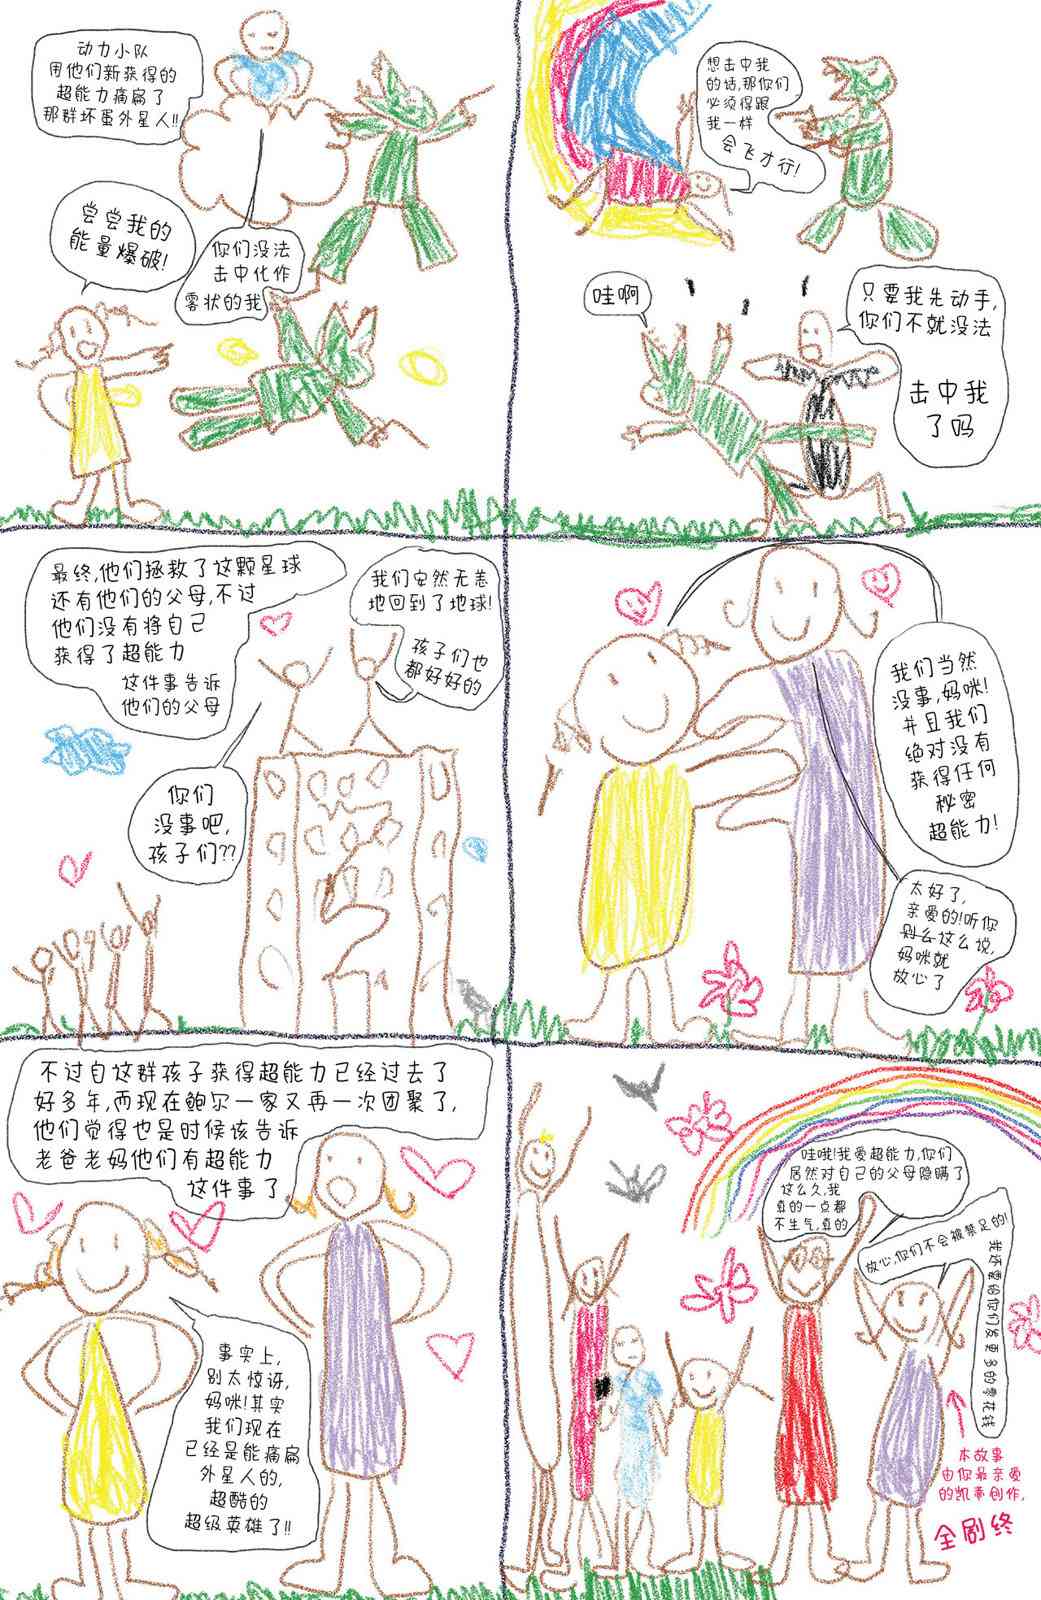 动力小队
用他们新获得的
超能力痛扁了
那群坏蛋外星人!!
尝尝我的
能量爆破!
你们没法
击中化作
雾状的我
想击中我
的话,那你们
必须得跟
我一样
会飞才行!
哇啊
只要我先动手,
你们不就没法
击中我
了吗
最终,他们拯救了这颗星球
还有他们的父母,不过
他们没有将自己
获得了超能力
这件事告诉
他们的父母
我们安然无恙
地回到了地球!
孩子们也
都好好的
你们
没事吧,
孩子们??
我们当然
没事,妈咪!
并且我们
绝对没有
获得任何
秘密
超能力!
太好了,
亲爱的!听你
这么说,
妈咪就
放心了
不过自这群孩子获得超能力已经过去了
好多年,而现在鲍尔一家又再一次团聚了,
他们觉得也是时候该告诉
老爸老妈他们有超能力
这件事了
事实上,
别太惊讶,
妈咪!其实
我们现在
已经是能痛扁
外星人的,
超酷的
超级英雄了!!
哇哦!我爱超能力,你们
居然对自己的父母隐瞒了
这么久,我
真的一点都
不生气,真的
放心,你们不会被禁足的!
我还要给你们发更多的零花钱
本故事
由你最亲爱
的凯蒂创作,
全剧终